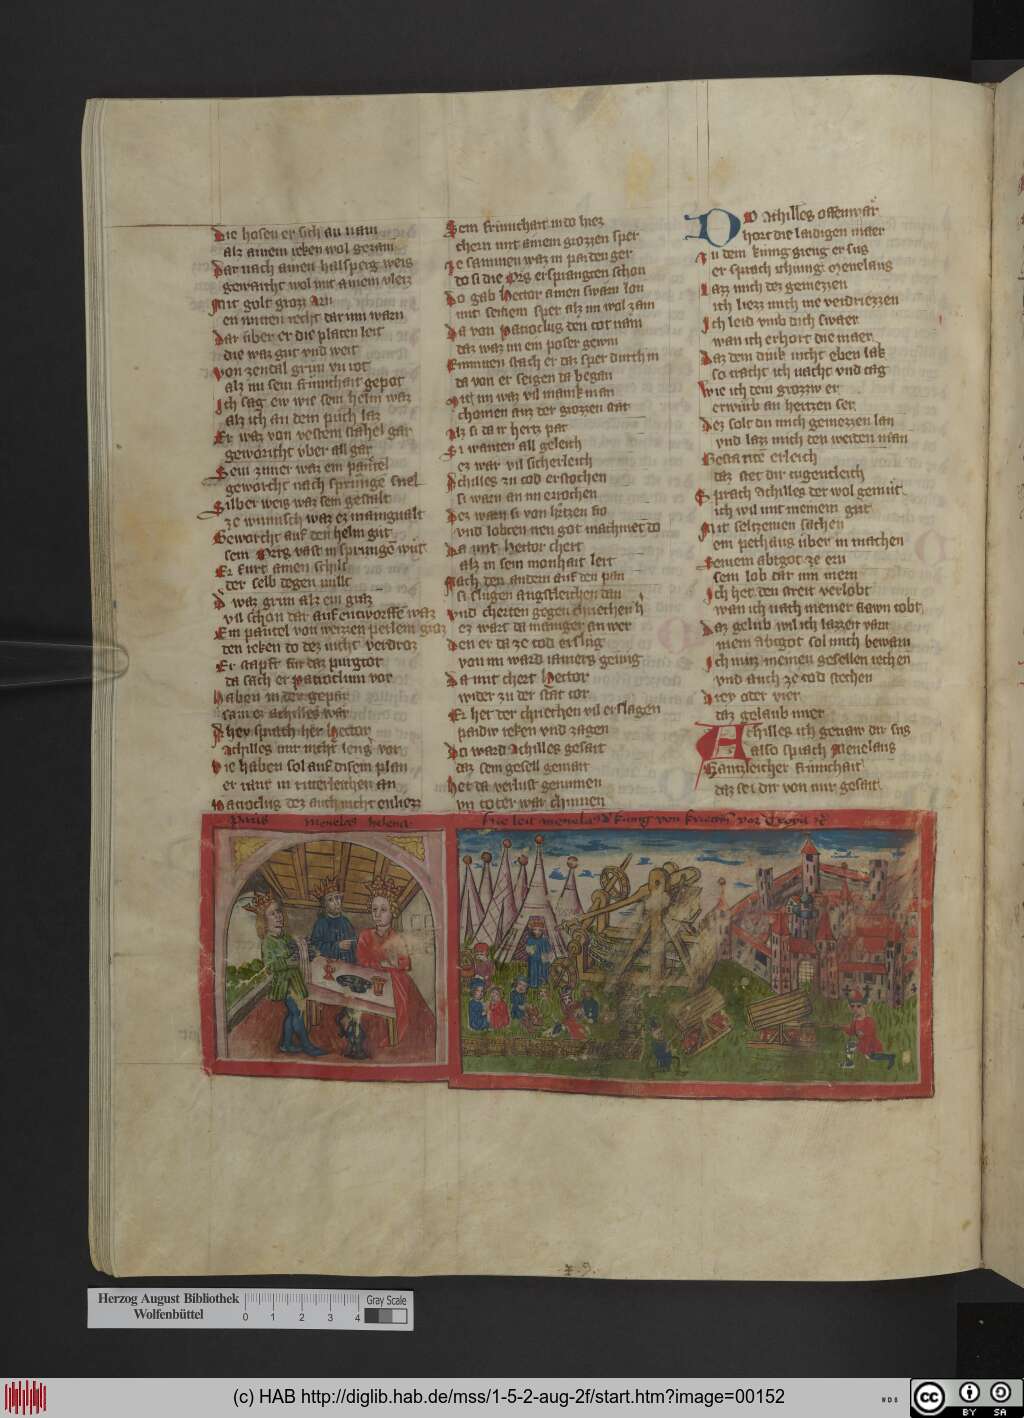 Die hosen er sich an nam
alz ainem reken wol gezam
Dar nach ainen halsperg weis
geworcht wol mit ainem vleiz
Mit golt grozz
en mitten recht dar inn warn
Dar über er die platen leit
die waz gut vnd weit
Von zendal grün vn rot
alz im sein frimchait gepot
Ich sag ew wie sein helm waz
alz ich an dem püch laz
Er waz von vestem stahel gar
geworicht vber all gar
Sein zimer waz ein pantel
geworcht nach sprunge snel
Silber weis waz sein gestalt
ze wunnsch waz ez manigualt
Geworcht auf den helm gut
sein vast in sprunge wüt
Er furt ainen schilt
der selb degen milt
D waz grün alz ein graz
vil schon dar auf entworffe waz
Ein pantel von weizzen perlein groz
den reken do dez nicht verdroz
Er stapft für daz purgtor
da sach er Patroclum vor
Haben in der gepar
sam ez Achilles war
A hey sprach her Hector
Achilles nur nicht leng vor
Wie haben sol auf disem plan
er rant in ritterleichen an
Patroclus dez auch nicht enliezz
Sein frimchait in do hiez
chern mit ainem grozzen sper
Ze samnen waz in paiden ger
do si die Ors ersprangten schon
Do gab Hector ainen swarn lon
mit seinem sper alz im wol zam
Da von Patroclus den tot nam
daz waz im ein poser gewin
Emitten stach er daz sper durch in
da von er seigen da began
Mit im waz vil manik man
chomen auz der grozzen stat
Alz si da ir hertz pat
Si wanten all geleich
ez war vil sicherleich
Achilles zu tod erstochen
si warn an im erochen
Dez warn si von hertzen fro
vnd lobten iren got machmet do
Da mit Hector chert
alz in sein monhait lert
Nach den andern auf den pan
si slugen angstleichen dan
Vnd cherten gegen chriechen h
ez wart da maniger an wer
Den er da ze tod erslug
von im ward iamers genug
Da mit chert Hector
wider zu der stat tor
Er het der chriechen vil erslagen
paidw reken vnd zagen
Do ward Achilles gesait
daz sein gesell gemait
Het da verlust genumen
vn toter war chumen
DO Achilles offenwar
hort die laidigen maer
Zu dem kunig gieng er sus
er sprach chunig Menelaus
Lazz mich dez geniezzen
ich liezz mich nie verdriezzen
Ich leid vmb dich swaer
wan ich erhort die maer
Daz dem dink nicht eben lak
so tracht ich nacht vnd tag
Wie ich dem grozzw er
erwurb an hertzen ser
Dez solt du mich geniezzen lan
vnd lazz mich den werden man
Bestaten erleich
daz stet dir tugentleich
Sprach Achilles der wol gemüt
ich wil mit meinem gut
Mit seltzemen sachen
ein pethaus über in machen
Meinem abtgot ze ern
sein lob dar inn mern
Ich het den streit verlobt
wan ich nach meiner frawn tobt
Daz gelub wil ich lazzen varn
mein Abtgot sol mich bewarn
Ich muz meinen gesellen rechen
vnd auch ze tod stechen
Drey oder vier
daz gelaub mier
Achilles ich genaw dir sus
also sprach Menelaus
Gantzleicher frimchait
daz sei dir von mir gesait
Paris menelos helena
hie leit menelaus d kunig von kriechen vor Troya
Herzog August Bibliothek
Wolfenbüttel
0 1 2 3 4
Gray Scale
(c) HAB http://diglib.hab.de/mss/1-5-2-aug-2f/start.htm?image=00152
cc BY SA